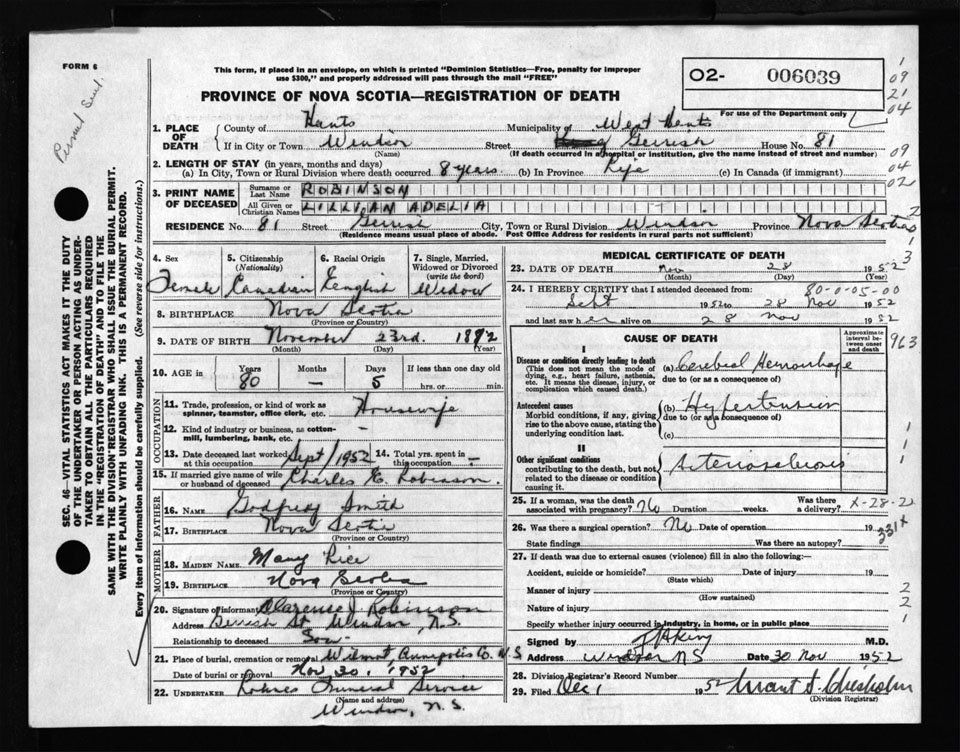 FORM 6
Permit Sent.
This form, if placed in an envelope, on which is printed "Dominion Statistics—Free, penalty for improper
use $300," and properly addressed will pass through the mail "FREE"
PROVINCE OF NOVA SCOTIA—REGISTRATION OF DEATH
O2- 006039
For use of the Department only
1
09
21
04
09
04
02
2
3
1. PLACE OF DEATH County of Hants Municipality of West Hants
If in City or Town Windsor Street Gerrish House No. 81
(Name) (If death occurred in a hospital or institution, give the name instead of street and number)
2. LENGTH OF STAY (in years, months and days)
(a) In City, Town or Rural Division where death occurred 8 years (b) In Province Life (c) In Canada (if immigrant)
3. PRINT NAME OF DECEASED
Surname or Last Name ROBINSON
All Given or Christian Names LILLIAN ADELIA
RESIDENCE No. 81 Street Gerrish City, Town or Rural Division Windsor Province Nova Scotia
(Residence means usual place of abode. Post Office Address for residents in rural parts not sufficient)
4. Sex Female
5. Citizenship (Nationality) Canadian
6. Racial Origin English
7. Single, Married, Widowed or Divorced (write the word) Widow
8. BIRTHPLACE Nova Scotia
(Province or Country)
9. DATE OF BIRTH November 23rd. 1872
(Month) (Day) (Year)
10. AGE in Years 80 Months — Days 5 If less than one day old
hrs. or min.
OCCUPATION
11. Trade, profession, or kind of work as
spinner, teamster, office clerk, etc. Housewife
12. Kind of industry or business, as cotton-
mill, lumbering, bank, etc. -
13. Date deceased last worked at this occupation Sept/1952 14. Total yrs. spent in this occupation -
15. If married give name of wife or husband of deceased Charles E. Robinson.
FATHER
16. NAME Godfredy Smith
17. BIRTHPLACE Nova Scotia
(Province or Country)
MOTHER
18. MAIDEN NAME Mary Rice
19. BIRTHPLACE Nova Scotia
(Province or Country)
20. Signature of informant Clarence J Robinson
Address Gerrish St Windsor, N.S.
Relationship to deceased Son
21. Place of burial, cremation or removal Wilmot Annapolis Co. N.S
Date of burial or removal Nov 30, 1952
22. UNDERTAKER Funeral Service
(Name and address)
Windsor, N.S.
MEDICAL CERTIFICATE OF DEATH
23. DATE OF DEATH Nov 28 1952
(Month) (Day) (Year)
80-0-05-00
24. I HEREBY CERTIFY that I attended deceased from:
Sept 1952 to 28 Nov 1952
and last saw her alive on 28 Nov 1952
CAUSE OF DEATH
Approximate interval between onset and death
963
I
Disease or condition directly leading to death
(This does not mean the mode of
dying, e.g., heart failure, asthenia,
etc. It means the disease, injury, or
complication which caused death.)
(a) Cerebral Hemorrhage
due to (or as a consequence of)
Antecedent causes
Morbid conditions, if any, giving
rise to the above cause, stating the
underlying condition last.
(b) Hypertension
due to (or as a consequence of)
(c)
II
Other significant conditions
contributing to the death, but not
related to the disease or condition
causing it.
Arteriosclerosis
1
1
1
1
25. If a woman, was the death
associated with pregnancy? No Duration weeks. Was there a delivery? X-28-2
26. Was there a surgical operation? No Date of operation 19
State findings Was there an autopsy?
331X
27. If death was due to external causes (violence) fill in also the following:—
Accident, suicide or homicide? Date of injury 19
(State which)
Manner of injury
(How sustained)
Nature of injury
Specify whether injury occurred in industry, in home, or in public place
2
2
1
Signed by M.D.
Address Windsor NS Date 30 Nov 1952
28. Division Registrar's Record Number
29. Filed Dec 1 1952 Chisholm
(Division Registrar)
SEC. 46—VITAL STATISTICS ACT MAKES IT THE DUTY
OF THE UNDERTAKER OR PERSON ACTING AS UNDER-
TAKER TO OBTAIN ALL THE PARTICULARS REQUIRED
IN THE "REGISTRATION OF DEATH" AND TO FILE THE
SAME WITH THE DIVISION REGISTRAR WHO SHALL ISSUE THE BURIAL PERMIT.
WRITE PLAINLY WITH UNFADING INK. THIS IS A PERMANENT RECORD.
Every item of information should be carefully supplied. (See reverse side for instructions.)